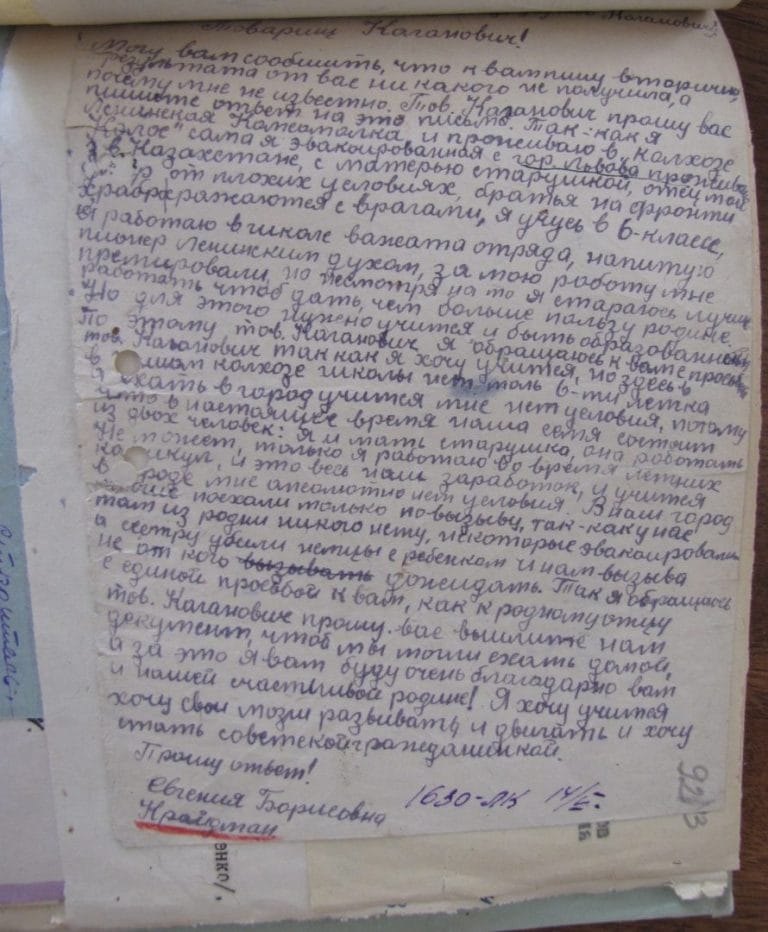 Кагановичу
Товарищ Каганович!
Могу вам сообщить, что к вам пишу вторично,
результата от вас ни какого не получила, а
почему мне не известно. Тов. Каганович прошу вас
пишите ответ на это письмо. Так-как я
Ленинская Комсомолка, и проживаю в колхозе
"Колос" сама я эвакоированная с гор. Львова проживаю
в Казахстане, с матерью старушкой, отец мой
от плохих условиях, братья на фронти
храбро сражаются с врагами, я учусь в 6-классе,
и работаю в школе важата отряда, напитую
пионер Ленинским духом, за мою работу мне
премировали, но несмотря на то я стараюсь лучше
работать чтоб дать, чем больше пользу родине.
Но для этого нужено учится и быть образованной
По этому тов. Каганович я обращаюсь к вам с просьбой
тов. Каганович так как я хочу учится, но здесь в
в колхозе школы нет толь 6-ти летка
а ехать в город учится мне нет условия, потому
что в настоящее время наша семя состоит
из двох человек: я и мать старушка, она работать
не может, только я работаю во время летних
каникул, и это весь наш заработок, и учится
в городе мне апсолютно нет условия. В наш город
поехали только по вызыву, так-как у нас
там из родни никого нету, некоторые эвакоировались
а сестру убили немцы с ребенком и нам вызыва
не от кого вызывать дожидать. Так я обращаюсь
с единой прозьбой к вам, как к родному отцу
тов. Каганович прошу вас вышлите нам
документ, чтоб мы могли ехать домой,
а за это я вам буду очень благодарно вам
и нашей счастливой родине! Я хочу учится
хочу свои мозги развывать и двигать и хочу
стать советской гражданинкой.
Прошу ответ!
Евгения Борисовна
Крайдман
1630-ЛК 14/V-
92/13
енко/.